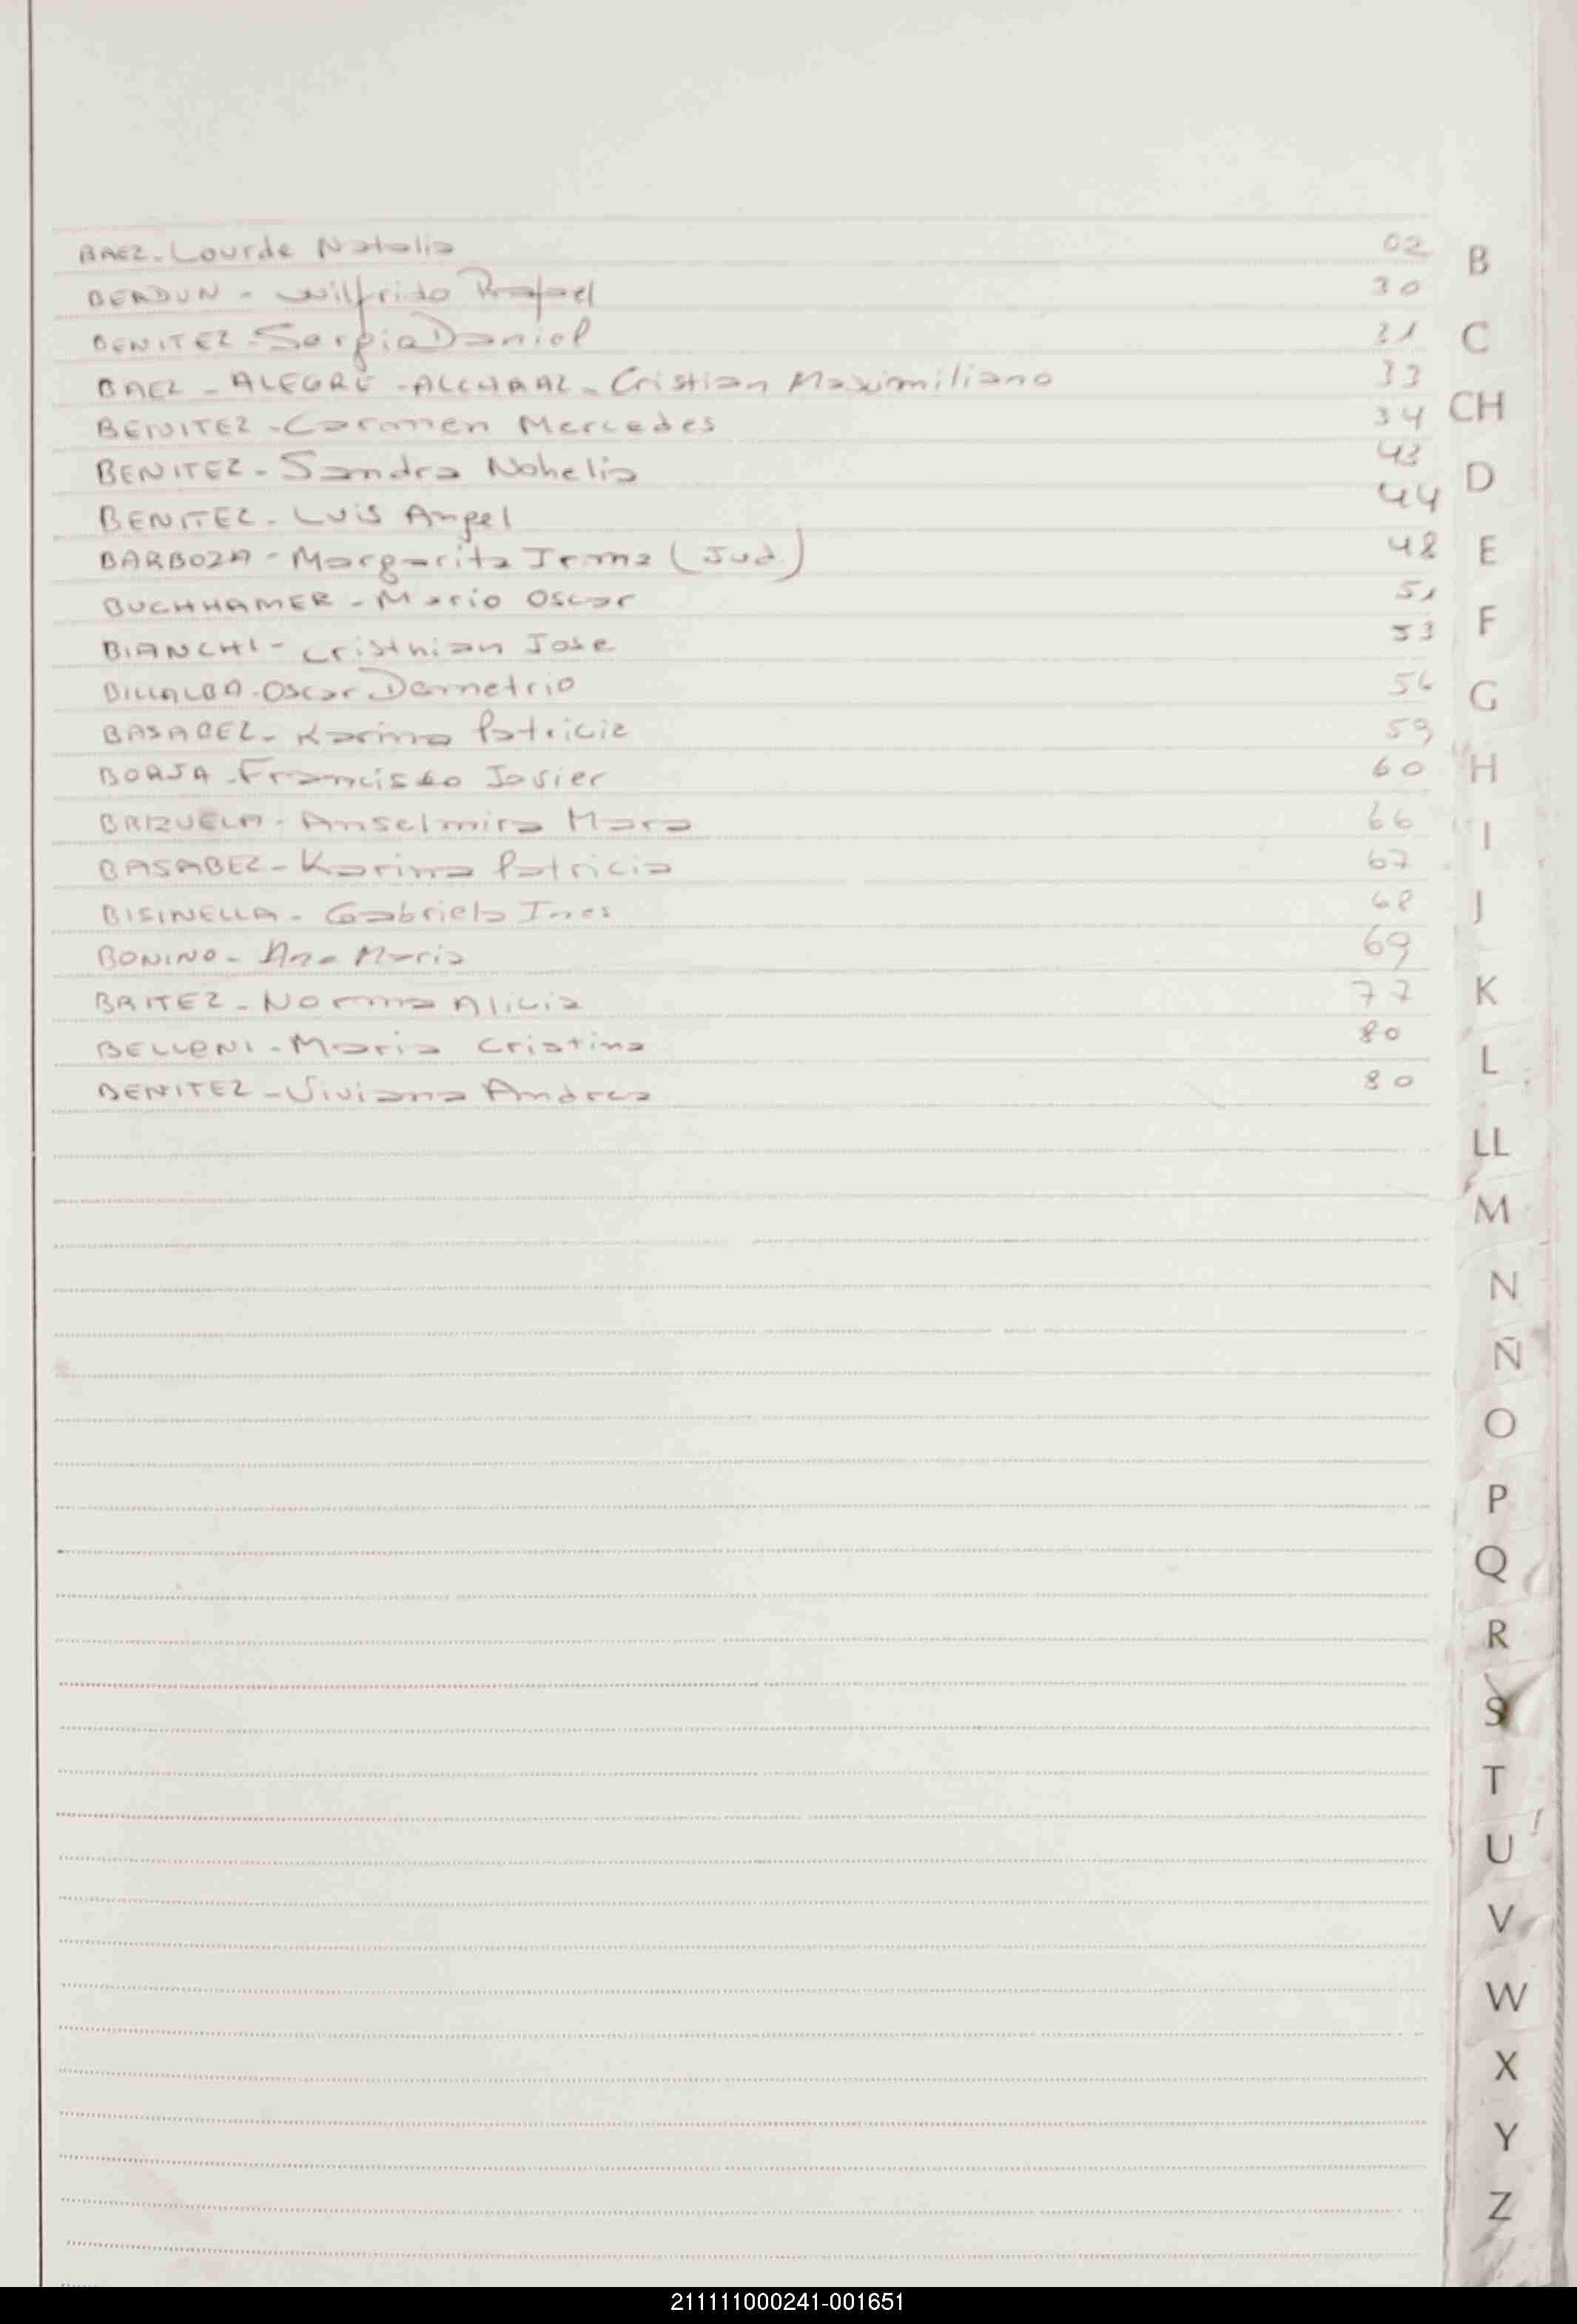 BAEZ-Lourde Natalia 02
BERDUN - Wilfrido Rafael 30
BENITEZ-Sergio Daniel 31
BAEZ - ALEGRE - Cristian Maximiliano 33
BENITEZ-Carmen Mercedes 34
BENITEZ-Sandra Nohelia 43
BENITEZ-Luis Angel 44
BARBOZA-Margarita Irma (Jud.) 48
BUCHHAMER-Mario Oscar 51
BIANCHI-Cristhian Jose 53
BILLALBA-Oscar Demetrio
BASABEZ-Karina Patricia 59
BORJA-Francisco Javier 60
BRIZUELA-Anselmira Mara 66
BASABEZ-Karina Patricia 67
BISINELLA-Gabriela Ines 68
BONINO-Ana Maria 69
BRITEZ-Norma Alicia 77
BELLONI-Maria Cristina 80
BENITEZ-Viviana Andrea 80
B
C
CH
D
E
F
G
H
I
J
K
L
LL
M
N
Ñ
O
P
Q
R
S
T
U
V
W
X
Y
Z
211111000241-001651